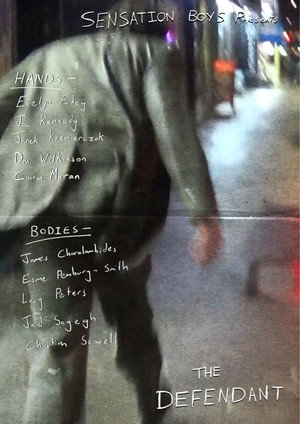 SENSATION BOYS Presents
HANDS -
Evelyn
Joe Kennedy
Jarek Kazmierczak
Dan Wilkinson
Ciara Moran
BODIES -
James Charalambides
Esme Pemburg-Smith
Lucy Peters
Jad Sayegh
Christian Sowell
THE
DEFENDANT